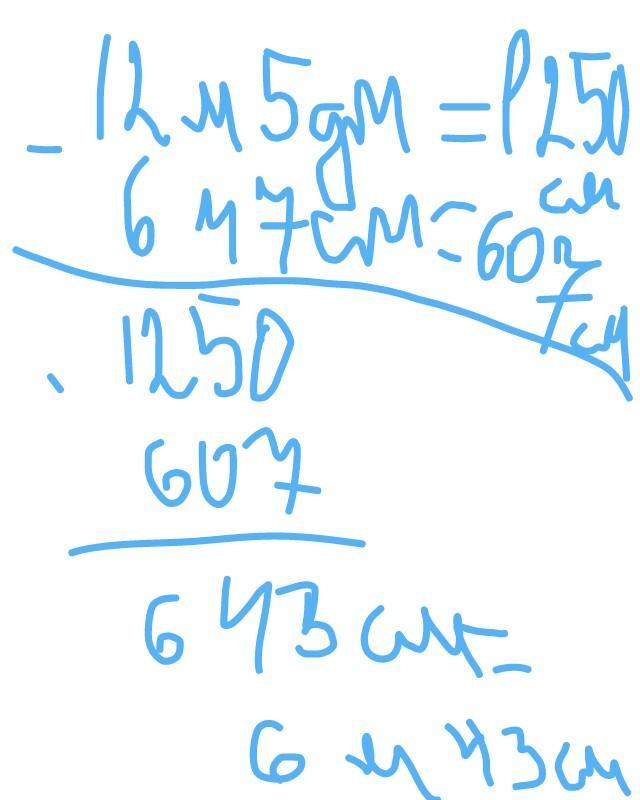 - 12 м 5 дм = 1250
см
6 м 7 см = 607
см
- 1250
607
643 см =
6 м 43 см